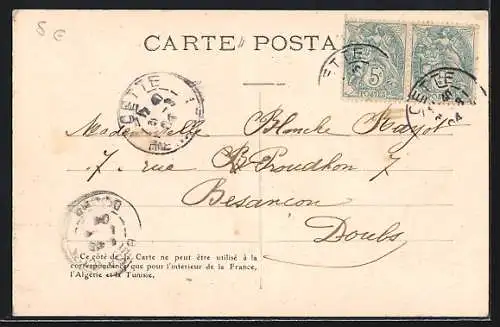 5 €
CARTE POSTA
CETTE
CETTE
CETTE
5c
POSTES
04
Mademoiselle Blanche Rayot
7, rue Proudhon 7
Besançon
Doubs
DOUBS
Ce côté de la Carte ne peut être utilisé à la
correspondance que pour l'intérieur de la France,
l'Algérie et la Tunisie.